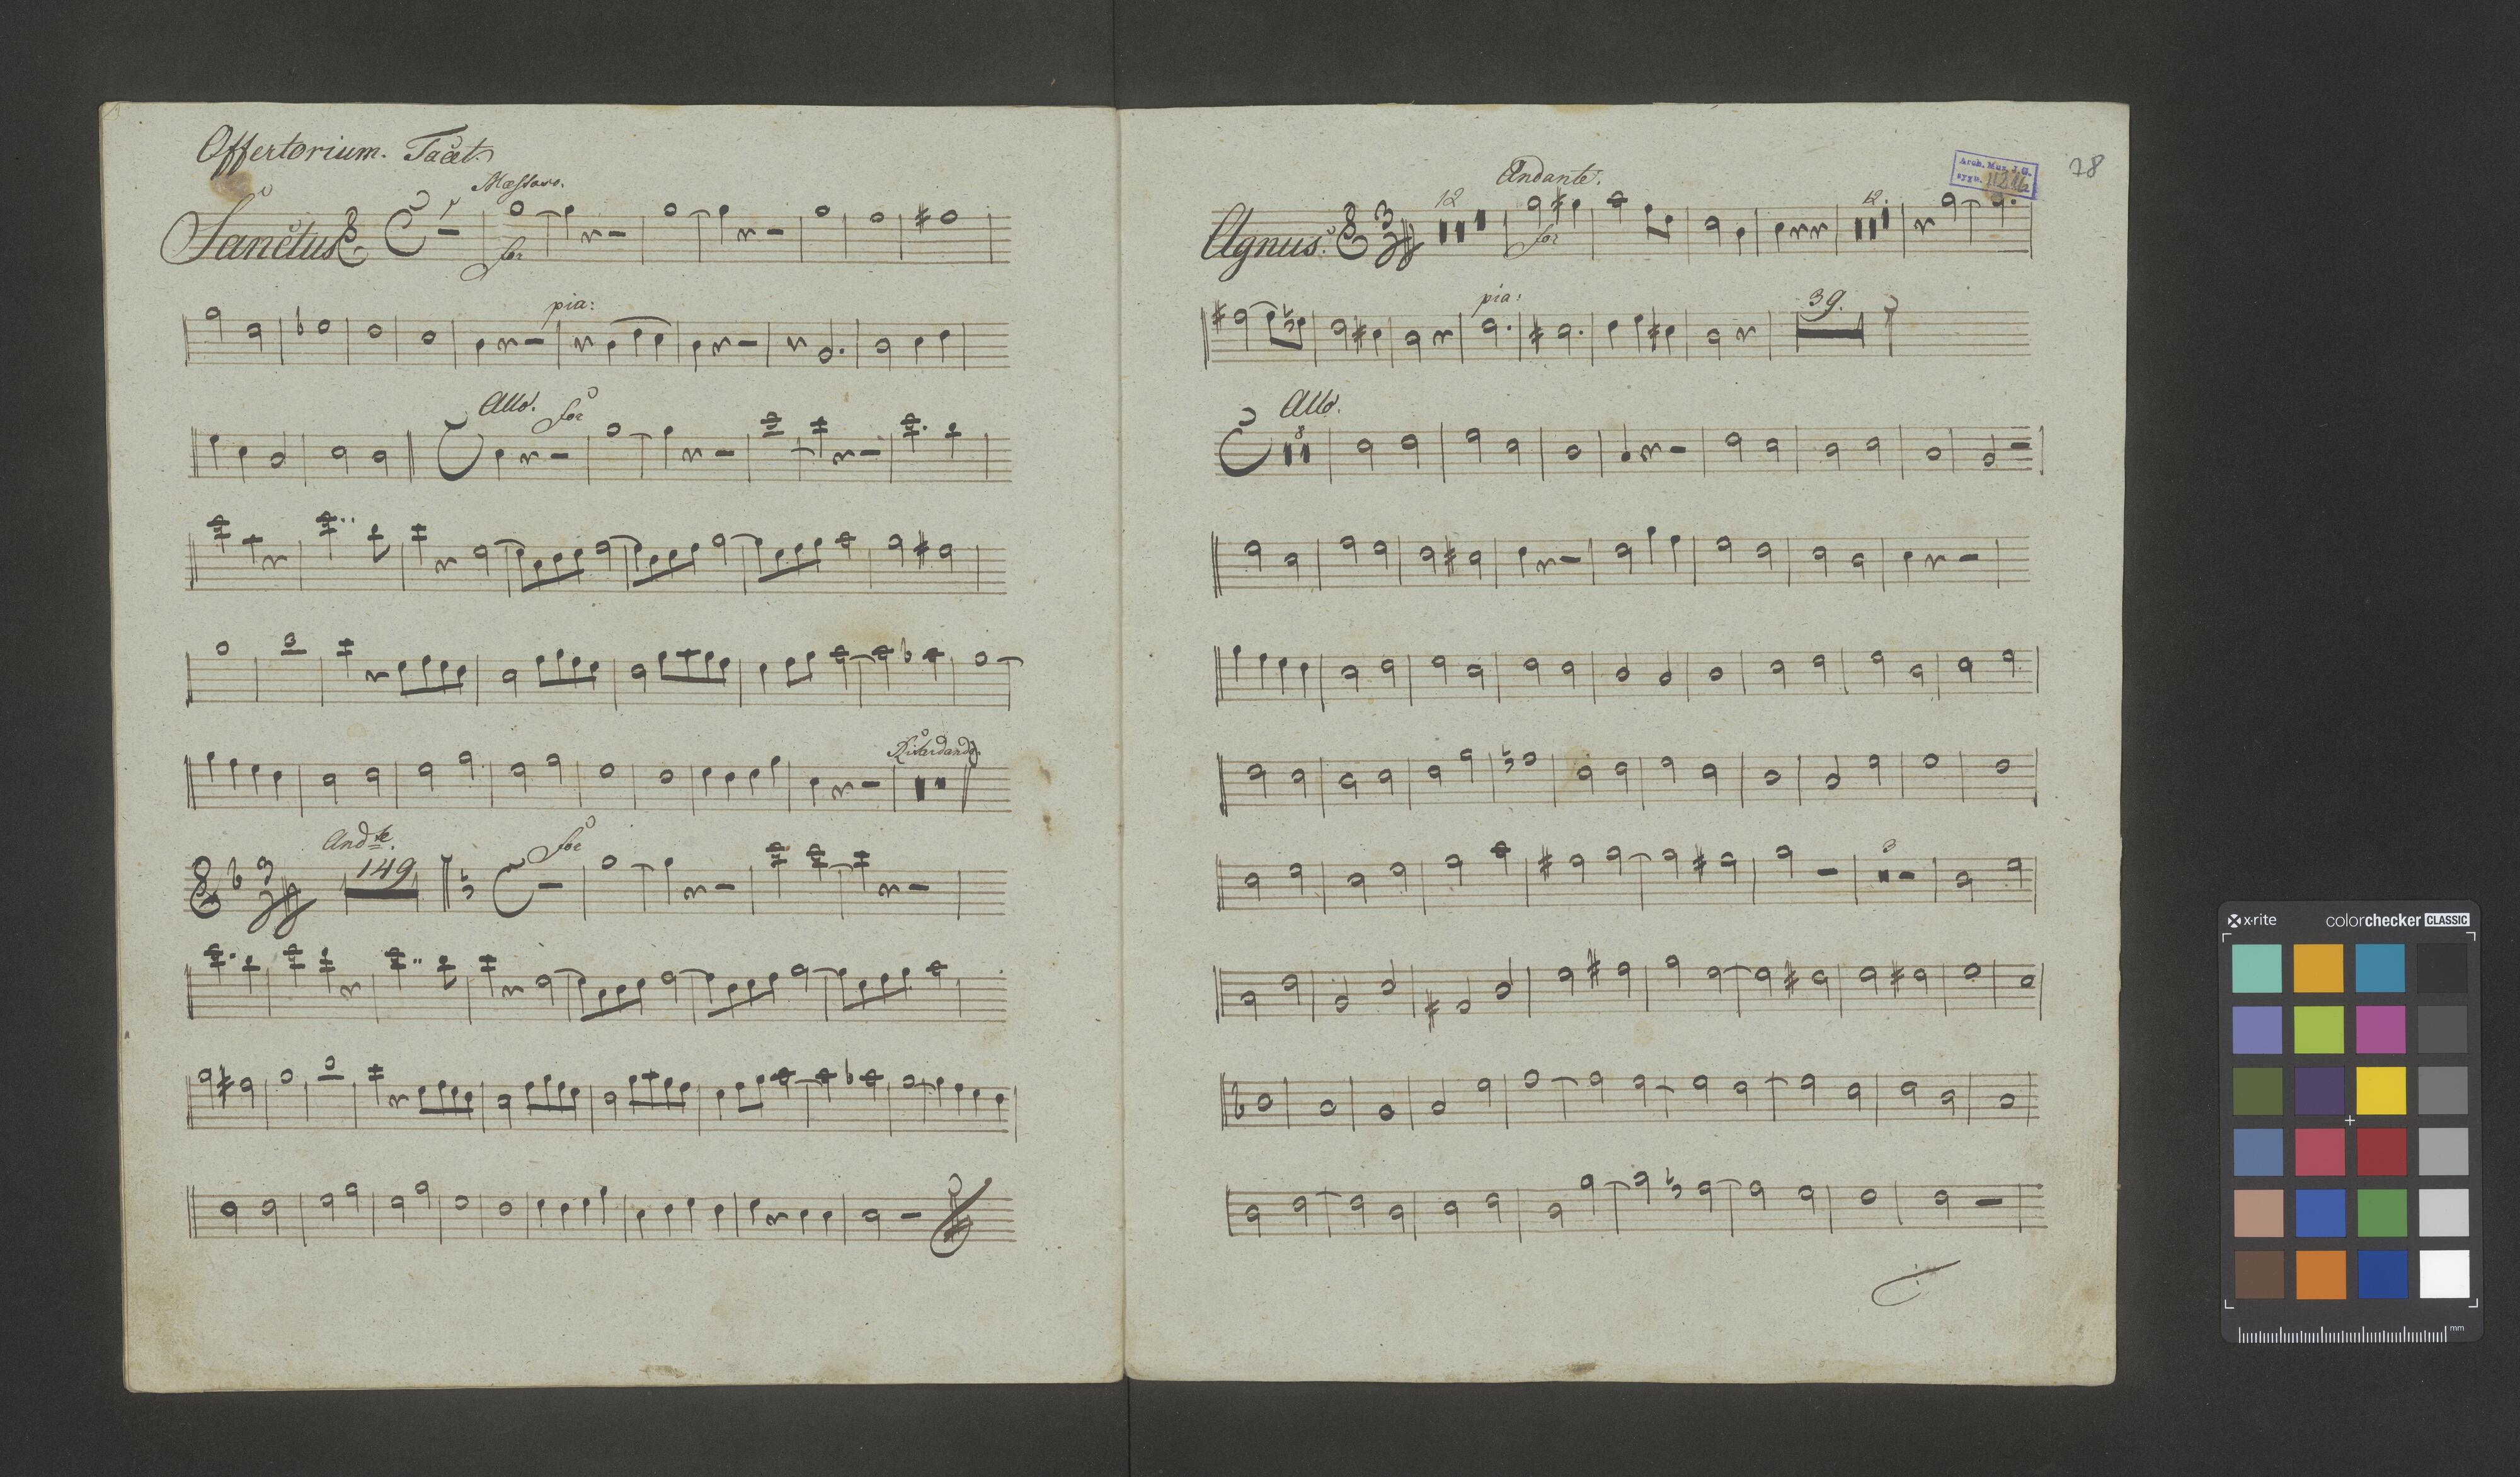 Offertorium. Tacet.
Mæstoso.
Sanctus
for
pia:
Allo. for
Ritardando.
Andte.
149
for
78
Arch. Muz. J.G.
sygn.
Andante.
12
12.
Agnus.
for
pia:
39.
Allo.
8
3
x-rite
colorchecker CLASSIC
mm